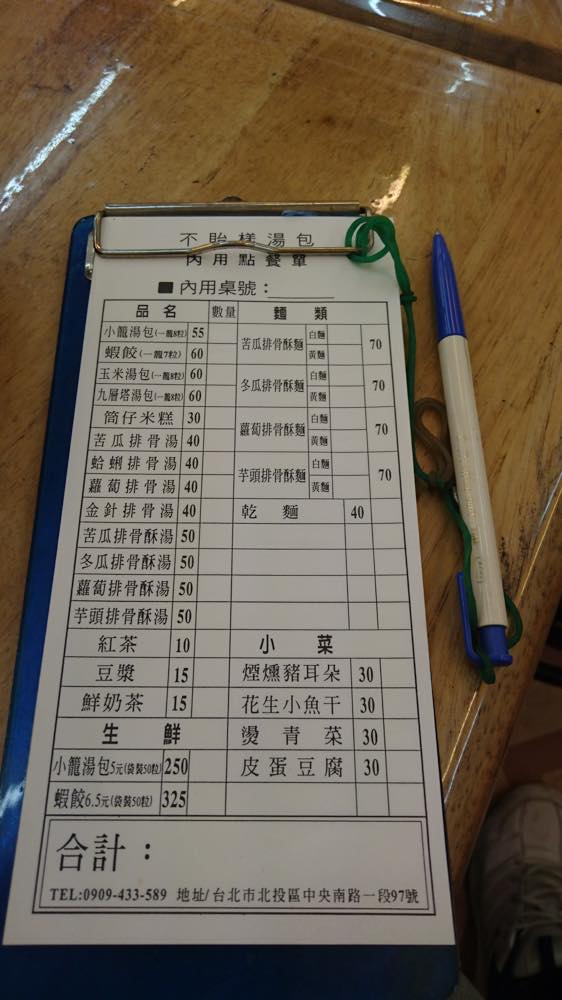 不貽樣湯包
內用點餐單
■內用桌號：
品名 數量 麵類
小籠湯包(一籠8粒) 55
蝦餃(一籠7粒) 60
玉米湯包(一籠8粒) 60
九層塔湯包(一籠8粒) 60
筒仔米糕 30
苦瓜排骨湯 40
蛤蜊排骨湯 40
蘿蔔排骨湯 40
金針排骨湯 40
苦瓜排骨酥湯 50
冬瓜排骨酥湯 50
蘿蔔排骨酥湯 50
芋頭排骨酥湯 50
紅茶 10
豆漿 15
鮮奶茶 15
生鮮
小籠湯包5元(袋裝50粒) 250
蝦餃6.5元(袋裝50粒) 325
苦瓜排骨酥麵 白麵 黃麵 70
冬瓜排骨酥麵 白麵 黃麵 70
蘿蔔排骨酥麵 白麵 黃麵 70
芋頭排骨酥麵 白麵 黃麵 70
乾麵 40
小菜
煙燻豬耳朵 30
花生小魚干 30
燙青菜 30
皮蛋豆腐 30
合計：
TEL:0909-433-589 地址/台北市北投區中央南路一段97號